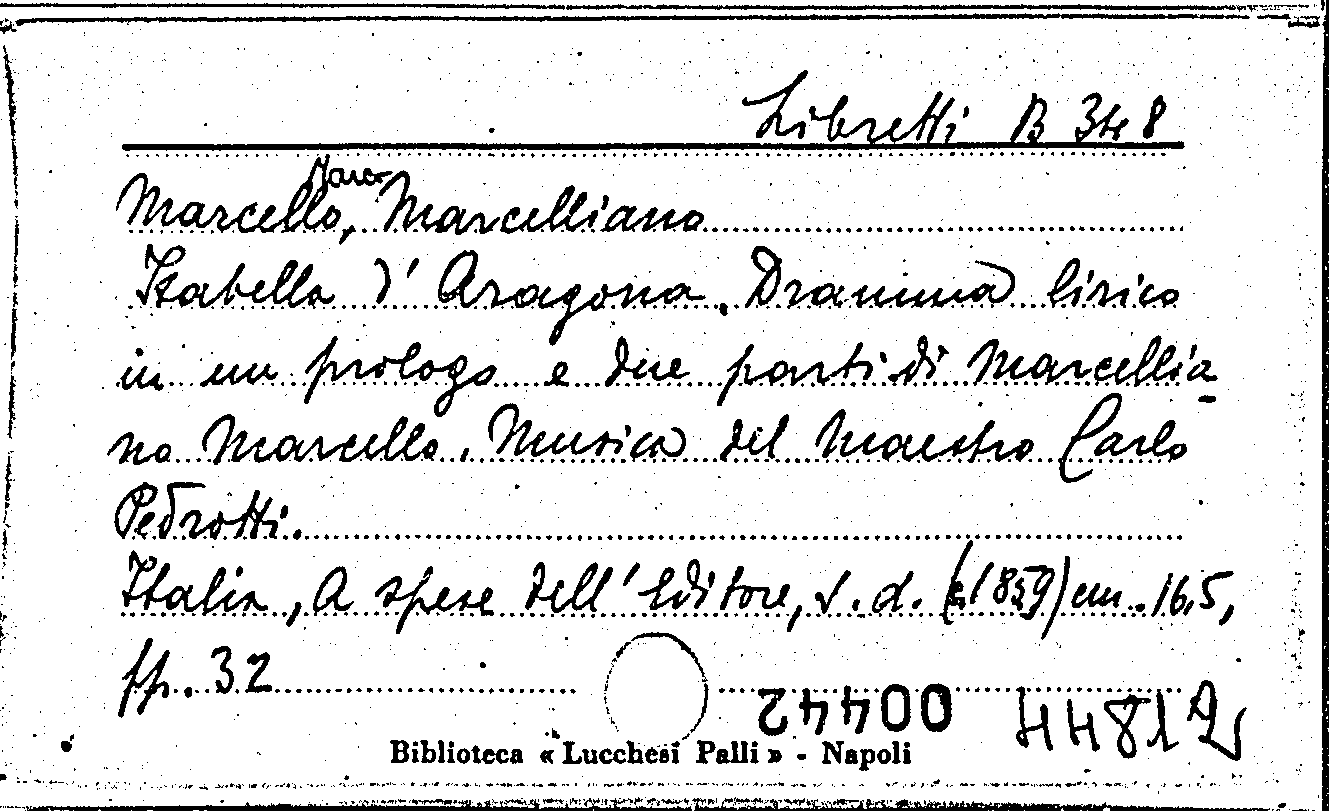 Libretti B 348
Marco
Marcello, Marcelliano
Isabella d'Aragona. Dramma lirico
in un prologo e due parti di Marcellia
no Marcello. Musica del Maestro Carlo
Pedrotti.
Italia, A spese dell'Editore, s. d. (1859) cm. 16,5,
pp. 32
00442
Biblioteca « Lucchesi Palli » - Napoli